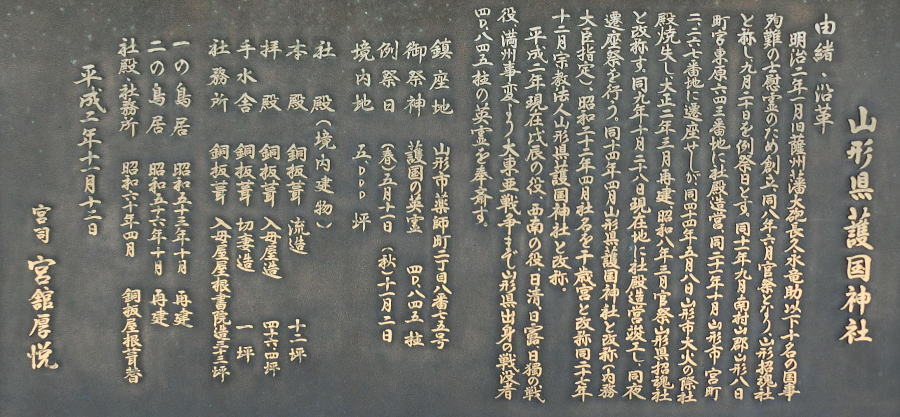 山形県護国神社
由緒・沿革
明治二年一月旧薩州藩大砲長久永竜助以下十名の国事
殉難の士慰霊のため創立、同八年六月官祭となり山形招魂社
と称し九月二十日を例祭日とす。同十一年九月南村山郡山形八日
町宮東原六四三番地に社殿造営、同二十年十月山形市宮町
二、六二番地に遷座せしが、同四十四年五月八日山形市大火の際社
殿焼失し、大正二年三月再建、昭和八年三月官祭山形県招魂社
と改称す。同九年十月二十八日現在地に社殿造営竣工し、同夜
遷座祭を行う。同十四年四月山形県護国神社と改称(内務
大臣指定)、昭和二十二年四月社名を千歳宮と改称同二十七年
十二月宗教法人山形県護国神社と改称。
平成二年現在戊辰の役、西南の役、日清日露日独の戦
役、満州事変より大東亜戦争まで山形県出身の戦没者
四〇、八四五柱の英霊を奉斎す。
鎮座地 山形市薬師町二丁目八番七五号
御祭神 護国の英霊 四〇、八四五柱
例祭日 (春)五月十一日 (秋)十一月二日
境内地 五、〇〇〇坪
社殿(境内建物)
本殿 銅板葺 流造 十二坪
拝殿 銅板葺 入母屋造 四十六・四坪
手水舎 銅板葺 切妻造 一坪
社務所 銅板葺 入母屋屋根書院造三十三坪
一の鳥居 昭和五十三年十月 再建
二の鳥居 昭和五十六年十月 再建
社殿、社務所 昭和六十年四月 銅板屋根葺替
平成二年十一月十二日
宮司 宮舘唇悦